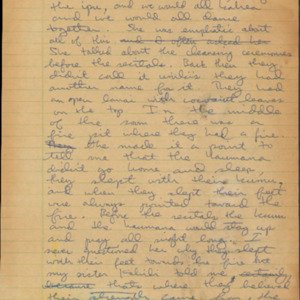 the ipu, and we would all
and we would all dance
together. She was emphatic about
all of this
She talked about the cleansing ceremonies
before the recitals. Back then they
didn't call it uniki's they had
another name for it. They had
an open lanai with coconut leaves
on the top. In the middle
of the room there was a
fire pit where they had a fire.
She made it a point to
tell me that the Haumana
didn't go home and sleep
they slept with their Kumu,
and when they slept their feet
were always pointed toward the
fire. Before the recitals the Kumu
and the Haumana would stay up
and pray all night long.
questioned her why they slept
with their feet towards the fire but
my sister told me
because thats where they believed
their strength came